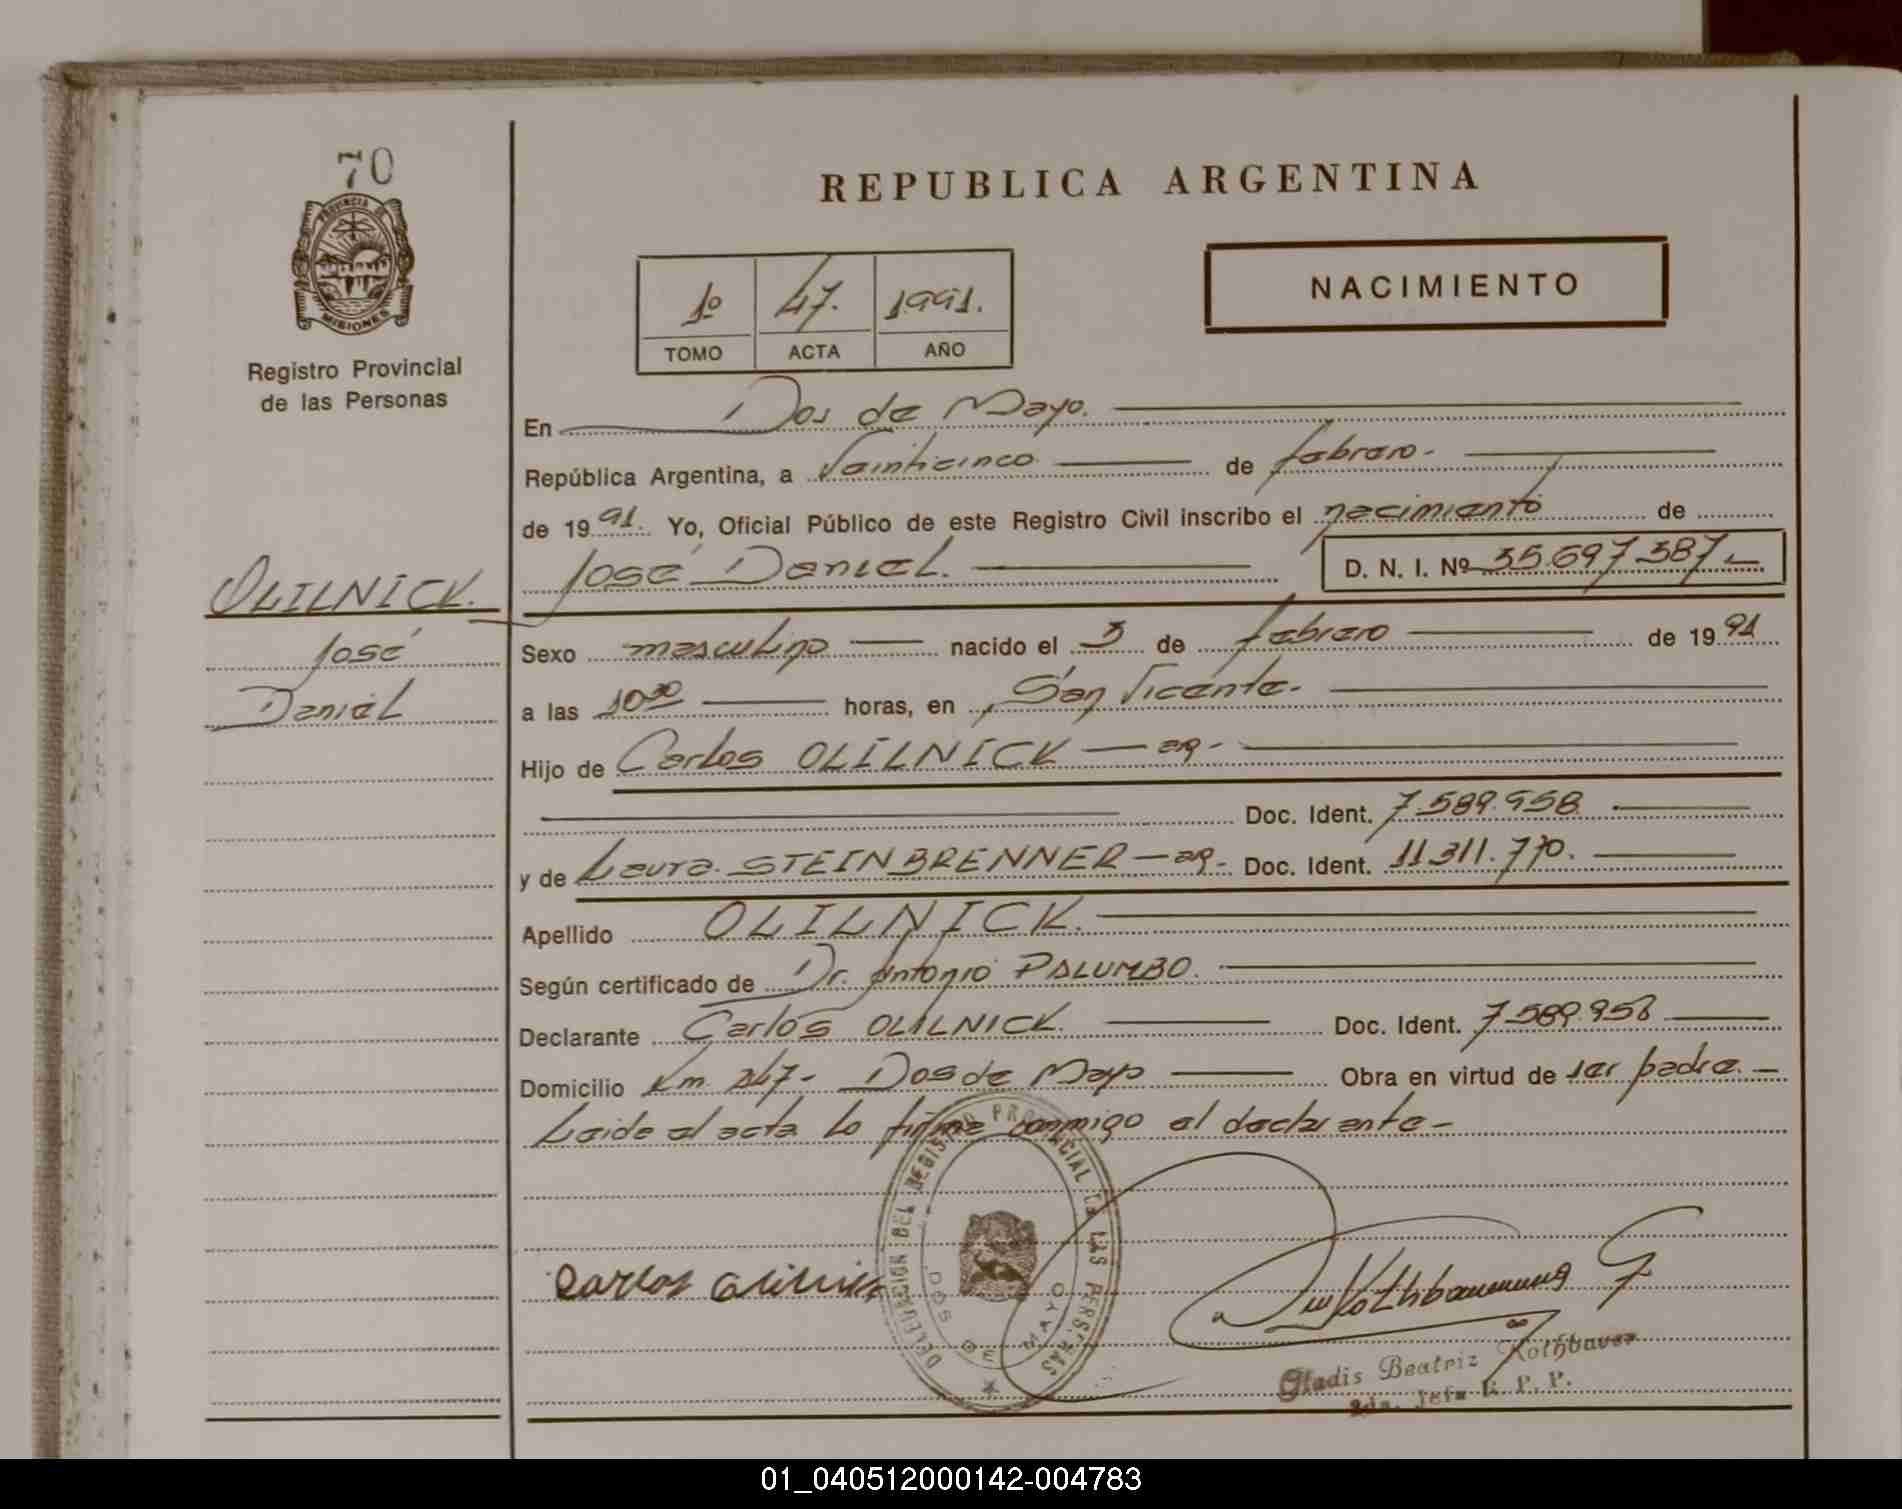 70
REPUBLICA ARGENTINA
PROVINCIA DE
MISIONES
Registro Provincial
de las Personas
1º 47. 1991.
TOMO ACTA AÑO
NACIMIENTO
En Dos de Mayo.
República Argentina, a Veinticinco de febrero.
de 1991. Yo, Oficial Público de este Registro Civil inscribo el nacimiento de
José Daniel. D. N. I. Nº 35.697.387
OLILNICK.
José
Daniel
Sexo masculino nacido el 3 de febrero de 1991
a las 10 30 horas, en San Vicente.
Hijo de Carlos OLILNICK - ar -
Doc. Ident. 7.589.958
y de Laura STEINBRENNER - ar - Doc. Ident. 11.311.770.
Apellido OLILNICK.
Según certificado de Dr. Antonio PALUMBO.
Declarante Carlos OLILNICK. Doc. Ident. 7.589.958
Domicilio Km. 247 - Dos de Mayo Obra en virtud de ser padre. -
Leida el acta lo firma conmigo el declarante -
DELEGACION DEL REGISTRO PROVINCIAL DE LAS PERSONAS
DOS DE MAYO
Carlos Olilnick
Gladis Beatriz Rothbauer
2da. Jefa R. P. P.
01_040512000142-004783